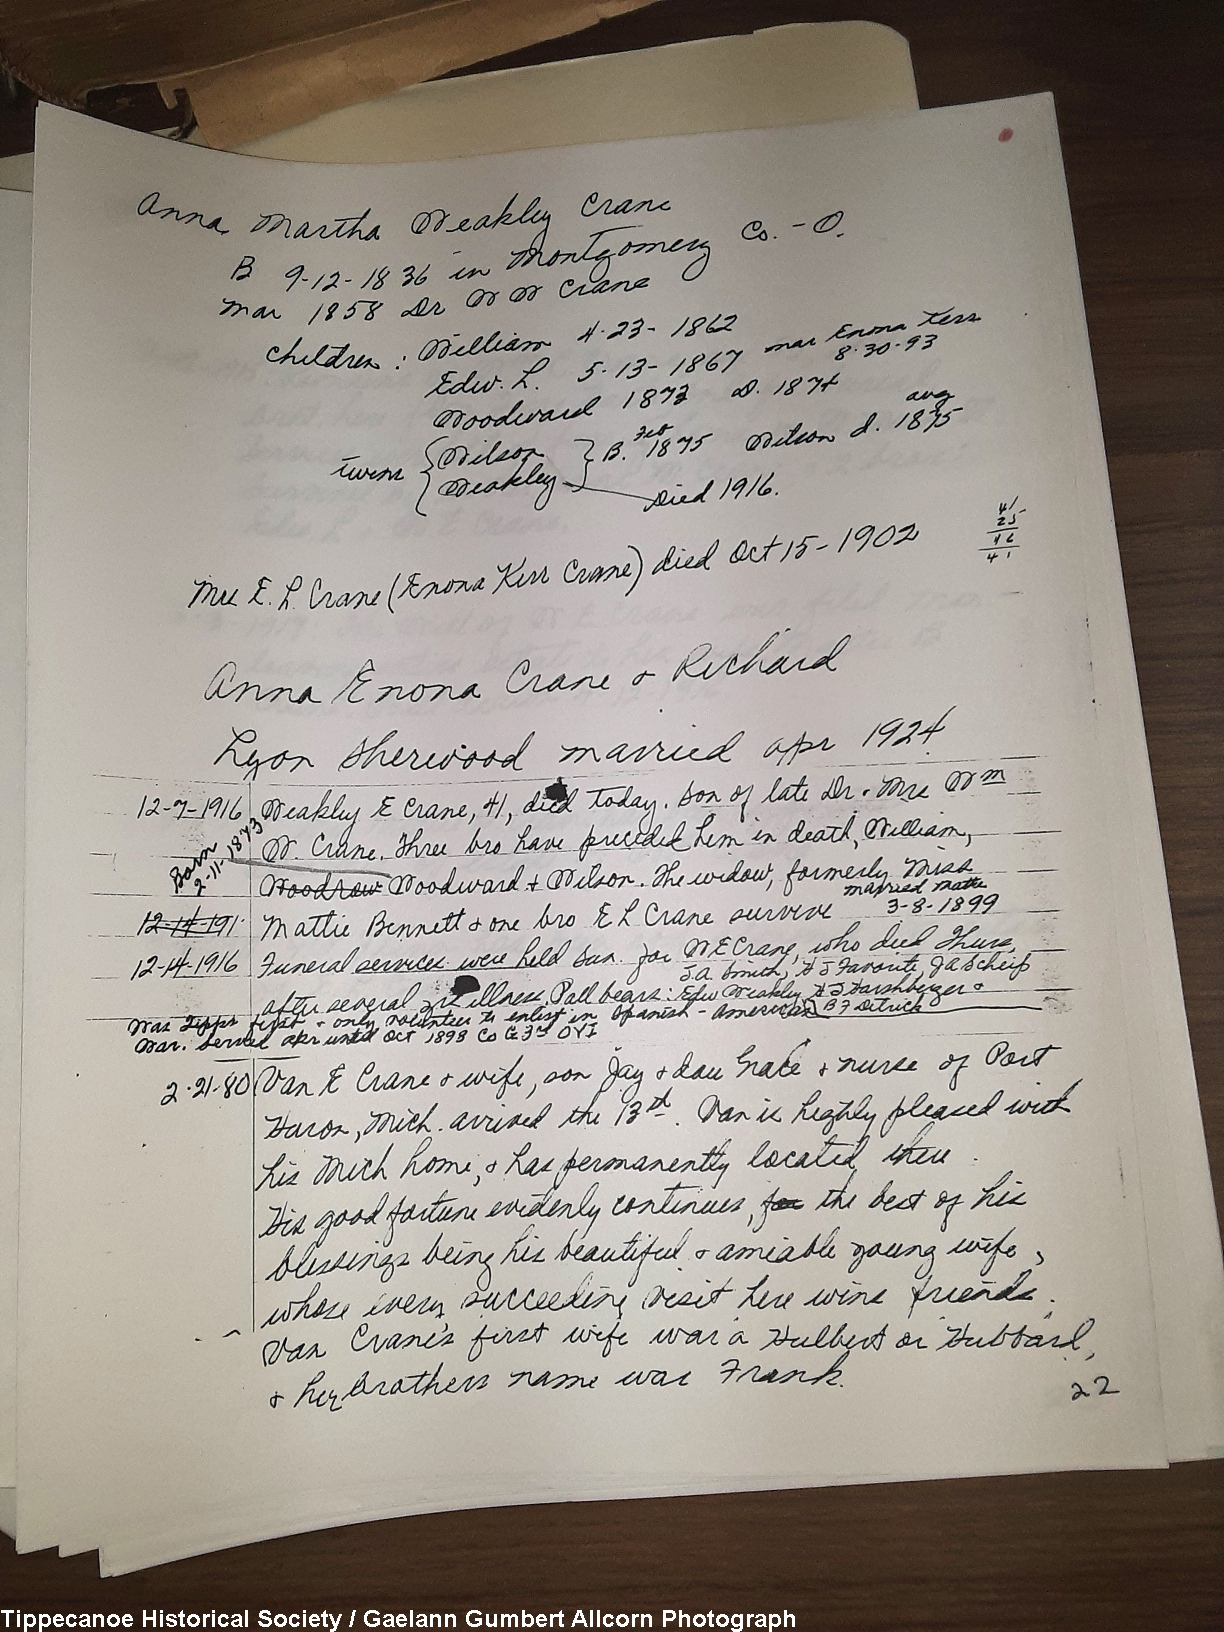 Anna Martha Weakley Crane
B 9-12-1836 in Montgomery Co. - O.
Mar 1858 Dr W W Crane
Children: William 4-23-1862
Edw. L. 5-13-1867 mar Enona Kerr
8-30-93
Woodward 1872 D. 1874
twins { Wilson } B. Feb 1875 Wilson d. Aug 1875
Weakley Died 1916.
41
25
16
41
Mrs E. L. Crane (Enona Kerr Crane) died Oct 15-1902
Anna Enona Crane & Richard
Lyon Sherwood married Apr 1924
12-7-1916 Weakley E Crane, 41, died today. Son of late Dr. & Mrs Wm
Born 2-11-1873
W. Crane. Three bro have preceded him in death, William,
Woodrow Woodward & Wilson. The widow, formerly Miss
married Mattie
3-8-1899
12-14-191 Mattie Bennett & one bro E L Crane survive
12-14-1916 Funeral services were held Sun. for W E Crane, who died Thurs,
after several illness. Pall bears: J.A. Smith, H J Favorite, J A Scheip
Edw Weakley, H J Harshberger &
B F Detrick
Was Tipps first & only volunteer to enlist in Spanish-American
War. Served Apr until Oct 1898 Co G 3rd OVI
2-21-80 Van E Crane & wife, son Jay & dau Grace & nurse of Port
Huron, Mich. arrived the 13th. Van is highly pleased with
his Mich home, & has permanently located there.
His good fortune evidenly continues, for the best of his
blessings being his beautiful & amiable young wife,
whose every succeeding visit here wins friends.
Van Crane's first wife was a Hulbert or Hubbard,
& her brothers name was Frank.
22
Tippecanoe Historical Society / Gaelann Gumbert Allcorn Photograph